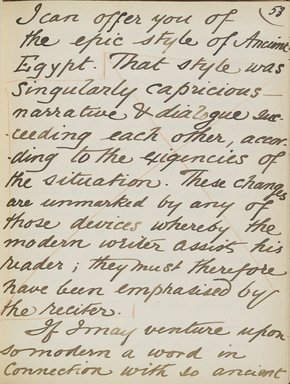 53
I can offer you of
the epic style of Ancient
Egypt. That style was
singularly capricious –
narrative & dialogue suc-
-ceeding each other, accor-
-ding to the exigencies of
the situation. These changes
are unmarked by any of
those devices whereby the
modern writer assists his
reader; they must therefore
have been emphasised by
the reciter.
If I may venture upon
so modern a word in
connection with so ancient